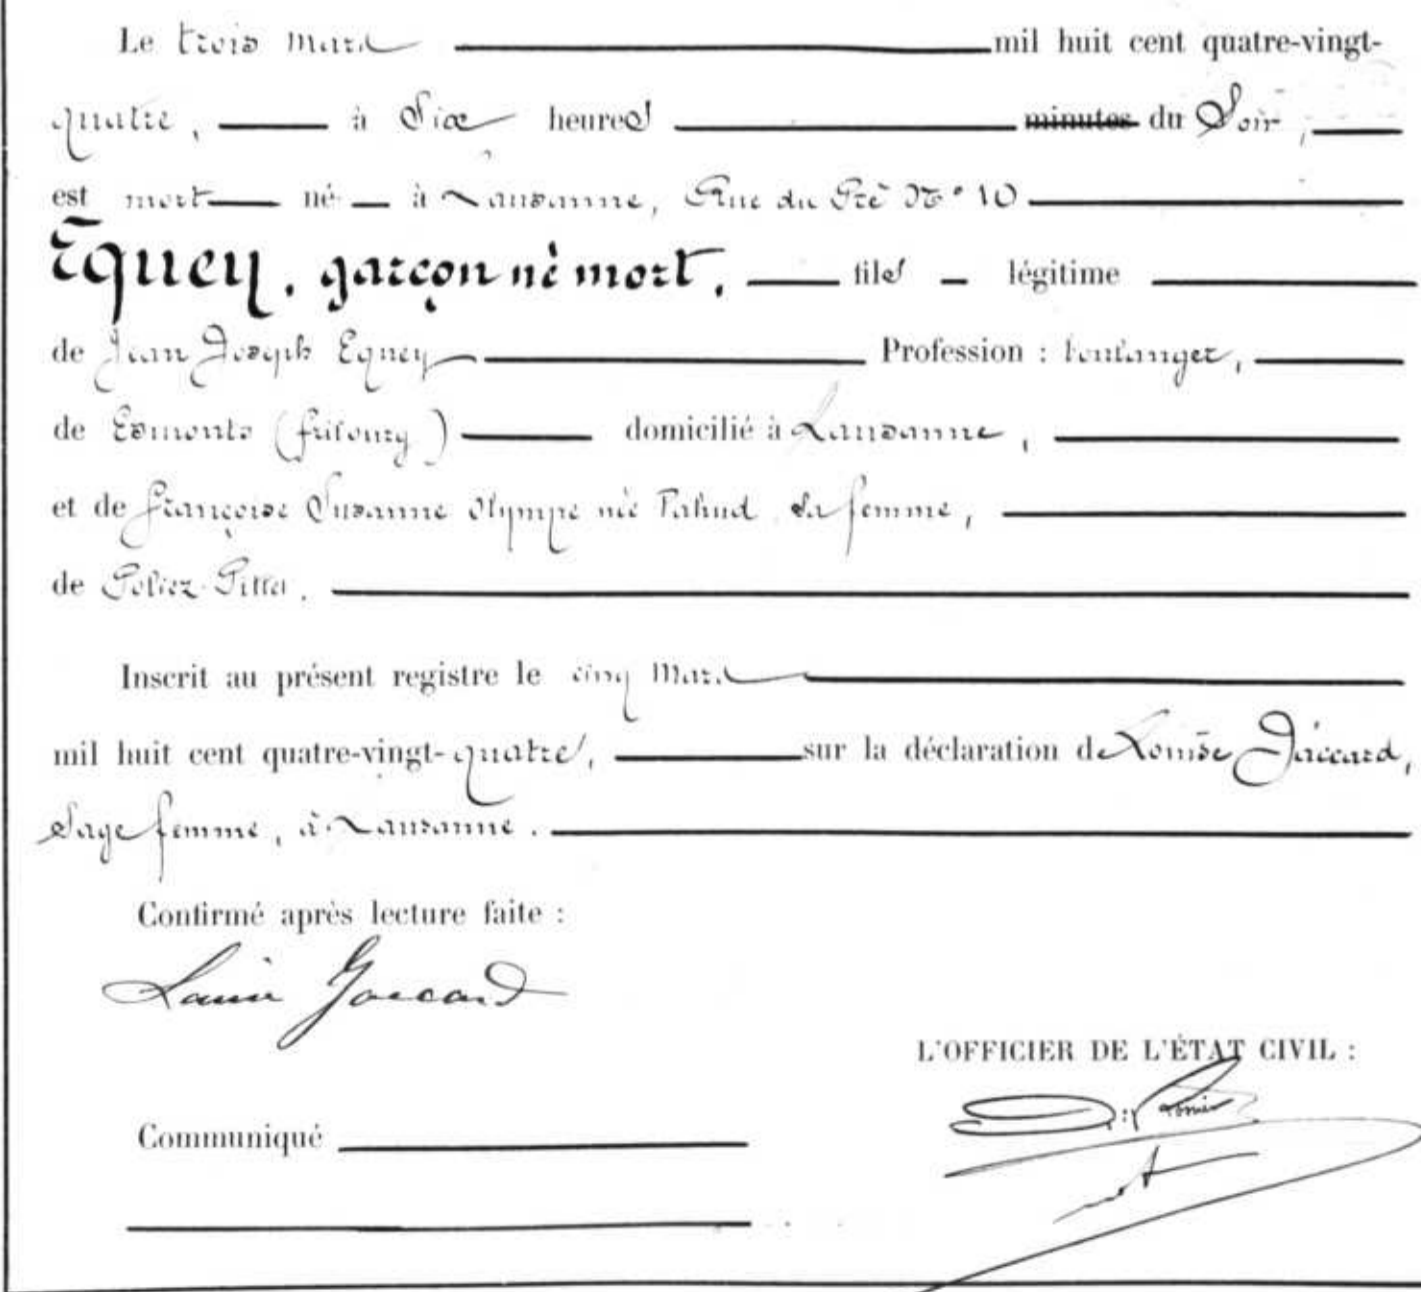 Le trois Mars mil huit cent quatre-vingt-
quatre, à Six heures minutes du Soir,
est mort né à Lausanne, Rue du Pré No 10
Equey, garçon né mort, fils légitime
de Jean Joseph Equey Profession : boulanger,
de Esmonts (fribourg) domicilié à Lausanne,
et de Françoise Susanne Olympe née Pahud, sa femme,
de Poliez-Pittet.
Inscrit au présent registre le cinq Mars
mil huit cent quatre-vingt-quatre, sur la déclaration de Louise Jaccard,
sage femme, à Lausanne.
Confirmé après lecture faite :
Louise Jaccard
L'OFFICIER DE L'ÉTAT CIVIL :
Communiqué